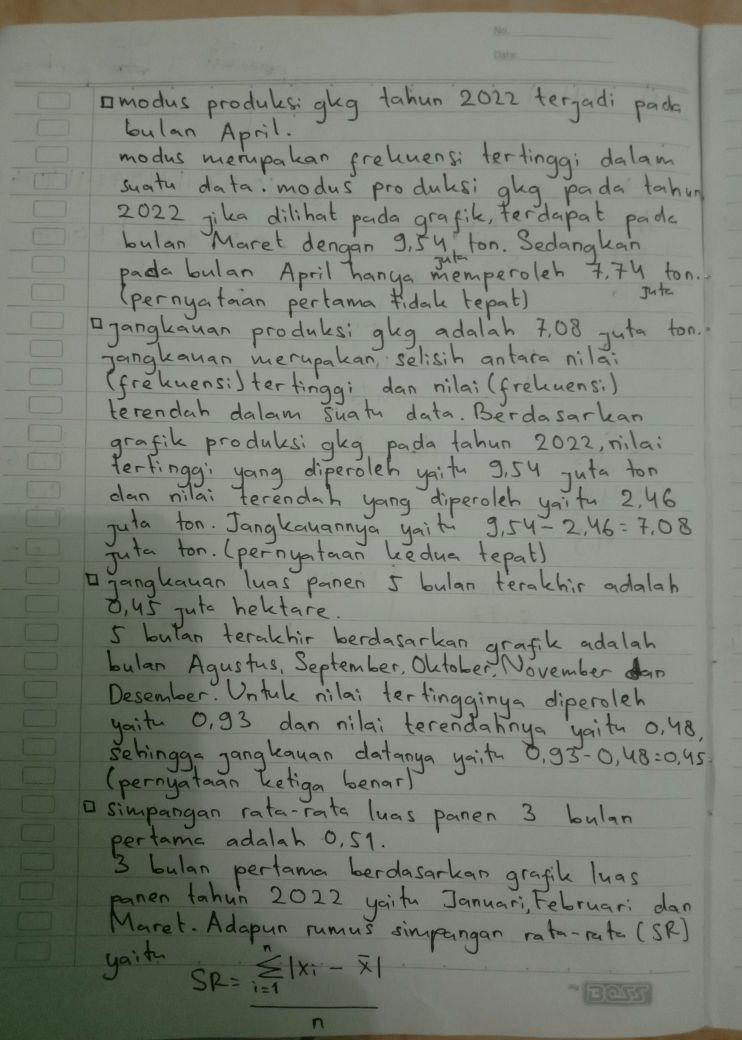 No.
Date
□ modus produksi gkg tahun 2022 terjadi pada
bulan April.
modus merupakan frekuensi tertinggi dalam
suatu data. modus produksi gkg pada tahun
2022 jika dilihat pada grafik, terdapat pada
bulan Maret dengan 9,54 juta ton. Sedangkan
pada bulan April hanya memperoleh 7,74 juta ton.
(pernyataan pertama tidak tepat)
□ jangkauan produksi gkg adalah 7,08 juta ton.
jangkauan merupakan selisih antara nilai
(frekuensi) tertinggi dan nilai (frekuensi)
terendah dalam suatu data. Berdasarkan
grafik produksi gkg pada tahun 2022, nilai
tertinggi yang diperoleh yaitu 9,54 juta ton
dan nilai terendah yang diperoleh yaitu 2,46
juta ton. Jangkauannya yaitu 9,54 - 2,46 = 7,08
juta ton. (pernyataan kedua tepat)
□ jangkauan luas panen 5 bulan terakhir adalah
0,45 juta hektare.
5 bulan terakhir berdasarkan grafik adalah
bulan Agustus, September, Oktober, November dan
Desember. Untuk nilai tertingginya diperoleh
yaitu 0,93 dan nilai terendahnya yaitu 0,48,
sehingga jangkauan datanya yaitu 0,93 - 0,48 = 0,45
(pernyataan ketiga benar)
□ simpangan rata-rata luas panen 3 bulan
pertama adalah 0,51.
3 bulan pertama berdasarkan grafik luas
panen tahun 2022 yaitu Januari, Februari dan
Maret. Adapun rumus simpangan rata-rata (SR)
yaitu
SR = n Σ i=1 |xi - x̄|
n
BOSS